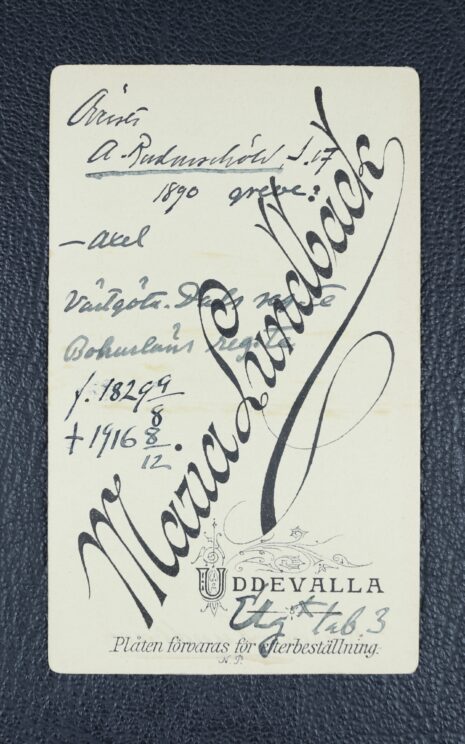 A. Rudenschöld, I. 17
1890 greve:
—Axel
Västgöta-Dals reg:te
Bohusläns reg:te
f. 1829 9/8
† 1916 8/12.
Maria Lundbäck
UDDEVALLA
tab 3
Plåten förvaras för efterbeställning.
N. P.